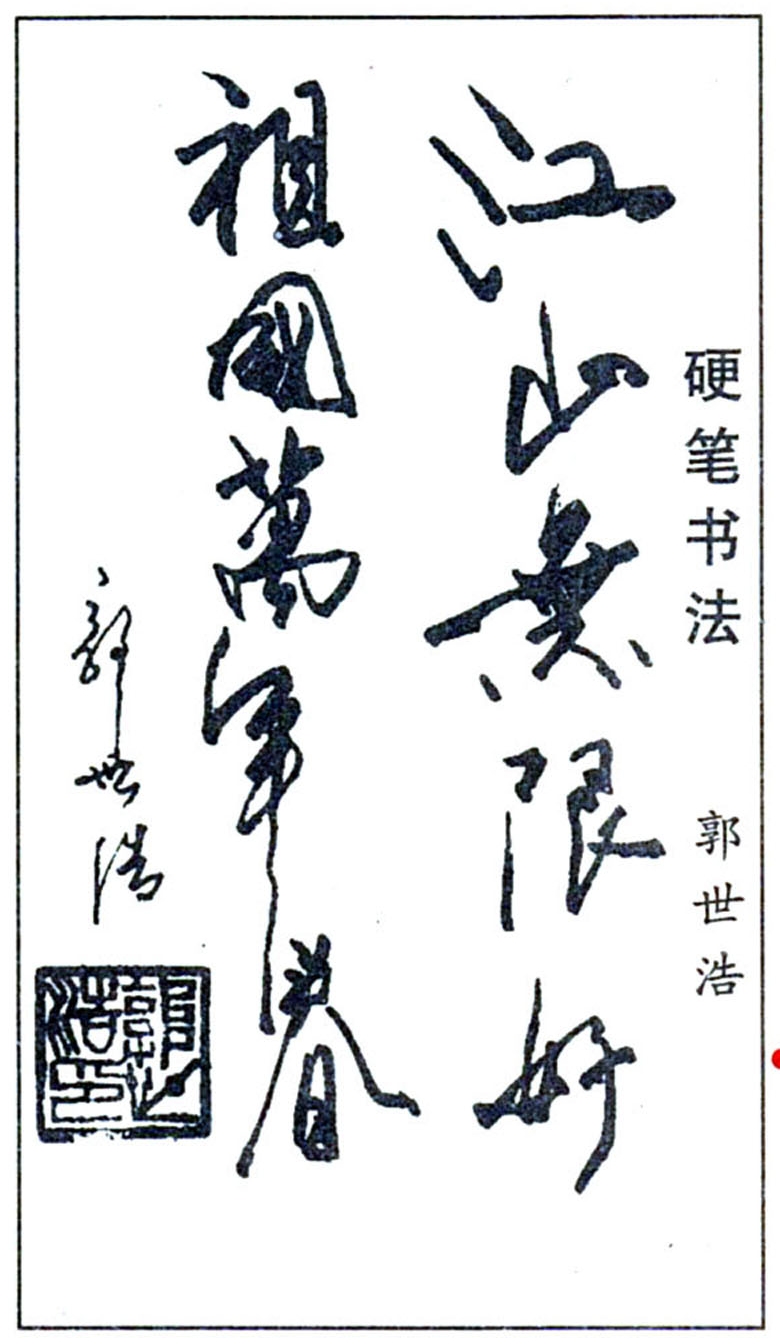 硬笔书法 郭世浩
江山無限好
祖國萬年春
郭世浩
郭世浩印